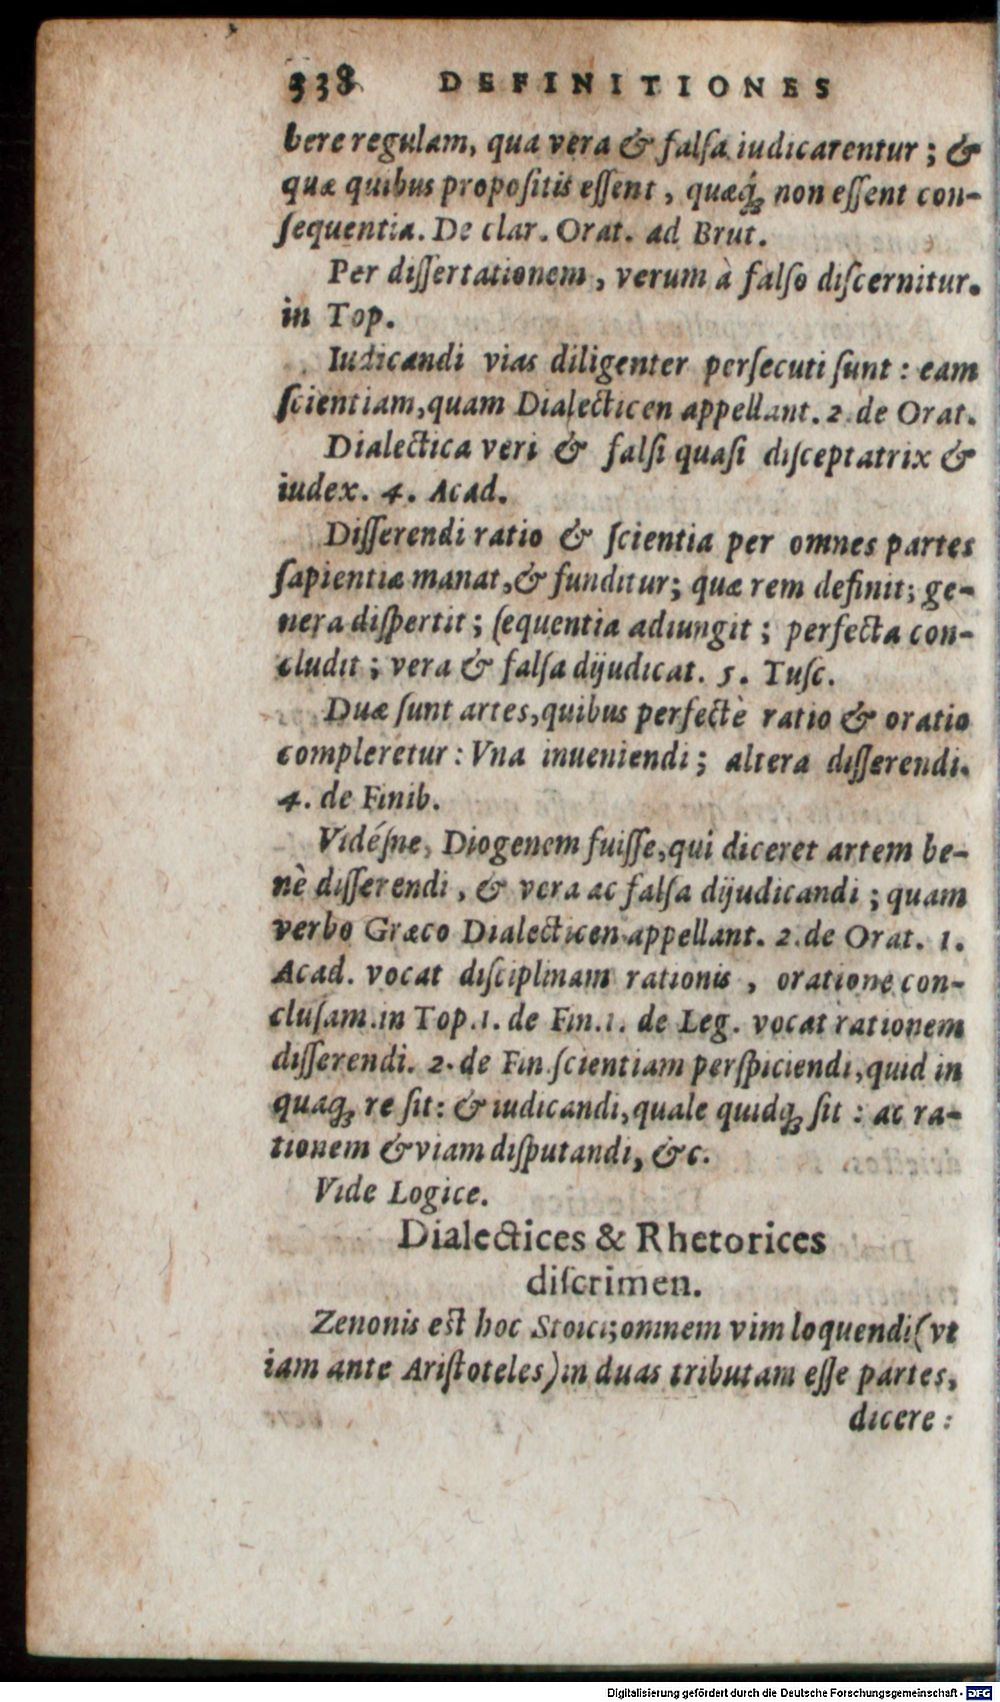 338 DEFINITIONES
bere regulam, qua vera & falſa iudicarentur ; &
quæ quibus propoſitis eſſent, quæq́ꝫ non eſſent con-
ſequentia. De clar. Orat. ad Brut.
Per diſſertationem, verum à falſo diſcernitur.
in Top.
Iudicandi vias diligenter perſecuti ſunt : eam
ſcientiam, quam Dialecticen appellant. 2. de Orat.
Dialectica veri & falſi quaſi diſceptatrix &
iudex. 4. Acad.
Diſſerendi ratio & ſcientia per omnes partes
ſapientiæ manat, & funditur; quæ rem definit; ge-
nera diſpertit ; ſequentia adiungit ; perfecta con-
cludit ; vera & falſa dijudicat. 5. Tuſc.
Duæ ſunt artes, quibus perfectè ratio & oratio
compleretur : Vna inueniendi ; altera diſſerendi.
4. de Finib.
Vidéſne, Diogenem fuiſſe, qui diceret artem be-
nè diſſerendi, & vera ac falſa dijudicandi ; quam
verbo Græco Dialecticen appellant. 2. de Orat. 1.
Acad. vocat diſciplinam rationis, oratione con-
cluſam. in Top. 1. de Fin. 1. de Leg. vocat rationem
diſſerendi. 2. de Fin. ſcientiam perſpiciendi, quid in
quaqꝫ re ſit : & iudicandi, quale quidqꝫ ſit : ac ra-
tionem & viam diſputandi, &c.
Vide Logice.
Dialectices & Rhetorices
diſcrimen.
Zenonis eſt hoc Stoici; omnem vim loquendi (vt
iam ante Ariſtoteles) in duas tributam eſſe partes,
dicere :
Digitalisierung gefördert durch die Deutsche Forschungsgemeinschaft - DFG